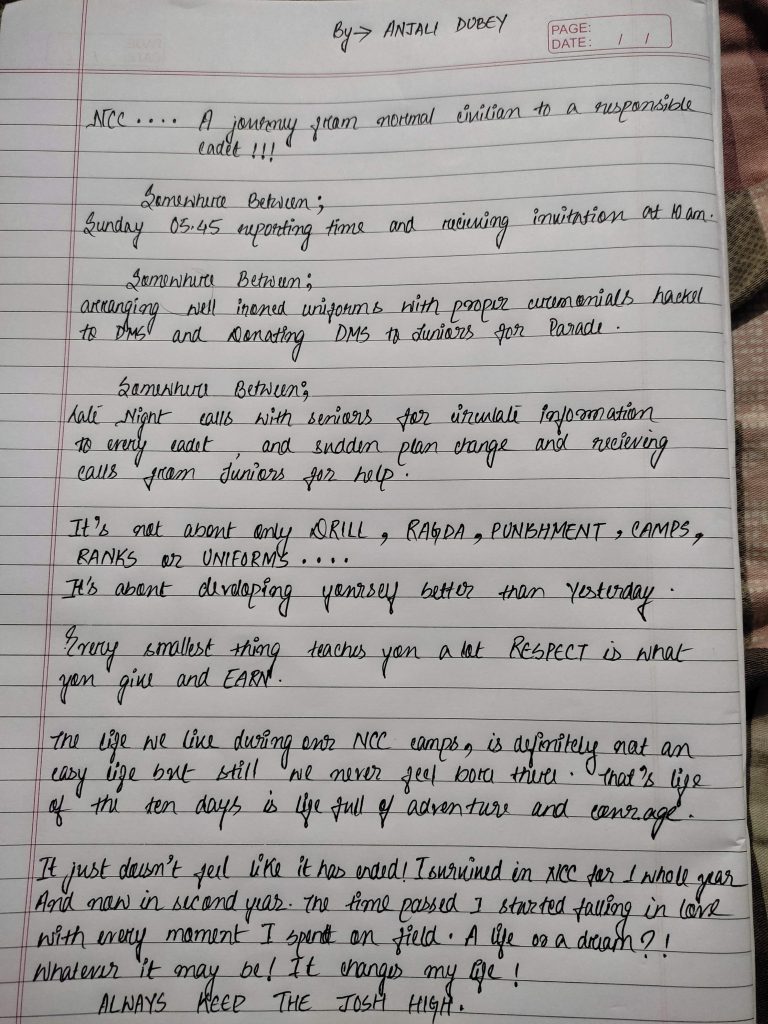 By → ANJALI DUBEY
PAGE:
DATE: / /
NCC .... A journey from normal civilian to a responsible
cadet !!!
Somewhere Between;
Sunday 05.45 reporting time and recieving invitation at 10 am.
Somewhere Between;
arranging well ironed uniforms with proper ceremonials hackel
to DMS and Donating DMS to Juniors for Parade.
Somewhere Between;
Late Night calls with seniors for circulate information
to every cadet, and sudden plan change and recieving
calls from Juniors for help.
It's not about only DRILL, RAGDA, PUNISHMENT, CAMPS,
RANKS or UNIFORMS ....
It's about developing yourself better than Yesterday.
Every smallest thing teaches you a lot RESPECT is what
you give and EARN.
The life we live during our NCC camps, is definitely not an
easy life but still we never feel bore there. That's life
of the ten days is life full of adventure and courage.
It just doesn't feel like it has ended! I survived in NCC for 1 whole year
And now in second year. The time passed I started falling in love
with every moment I spent on field. A life or a dream?!
Whatever it may be! It changes my life!
ALWAYS KEEP THE JOSH HIGH.